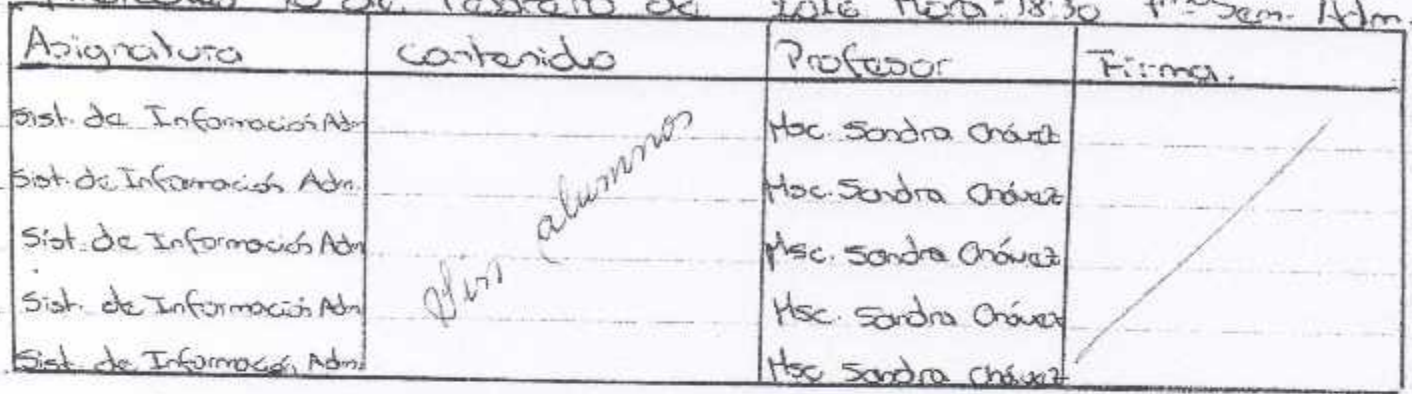 Miércoles 10 de Febrero de 2016 Hora: 18:30 1º Sem. Adm.
Asignatura contenido Profesor Firma.
Sist. de Información Adm Msc. Sandra Chávez
Sist. de Información Adm. Msc. Sandra Chávez
Sist. de Información Adm Msc. Sandra Chávez
Sin alumnos
Sist. de Información Adm Msc. Sandra Chávez
Sist. de Información Adm. Msc Sandra Chávez